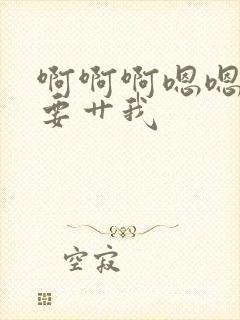 啊啊啊嗯嗯
要艹我
空寂